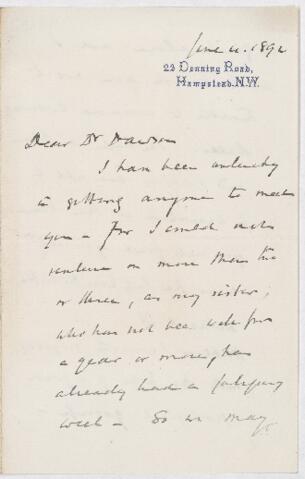 June 4. 1892
22 Denning Road,
Hampstead. N.W.
Dear Dr Dawson
I have been unlucky
in getting anyone to meet
you – For I could not
venture on more than two
or three, as my sister,
who has not been well for
a year or more, has
already had a fatiguing
week – So we may